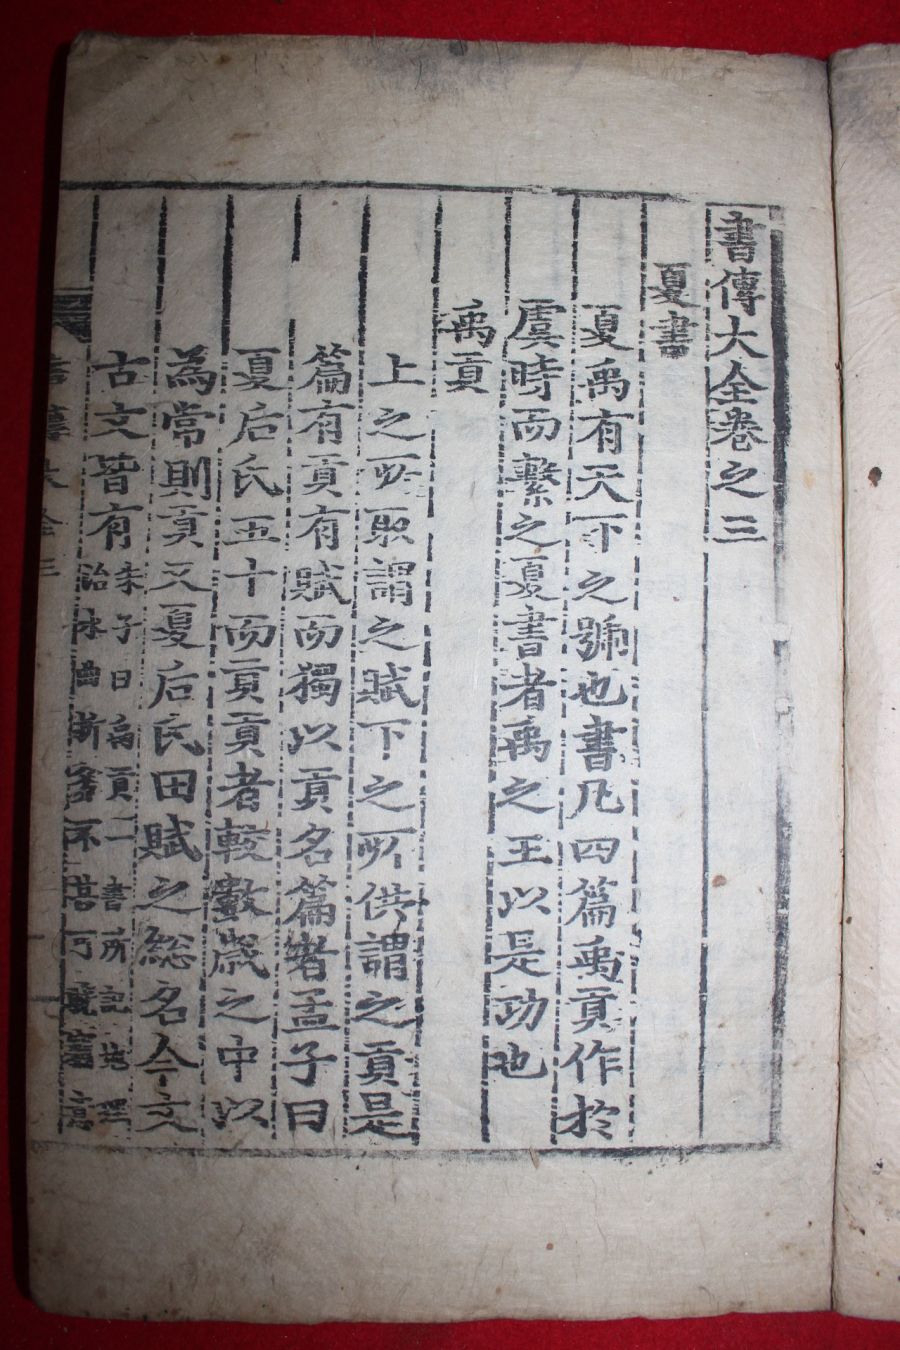 書傳大全卷之三
夏書
夏禹有天下之號也書凡四篇禹貢作於
虞時而繫之夏書者禹之王以是功也
禹貢
上之所取謂之賦下之所供謂之貢是
篇有貢有賦而獨以貢名篇者孟子曰
夏后氏五十而貢貢者較數歲之中以
為常則貢又夏后氏田賦之総名今文
古文皆有
朱子曰禹貢一書所記地理
治水曲折多不甚可曉